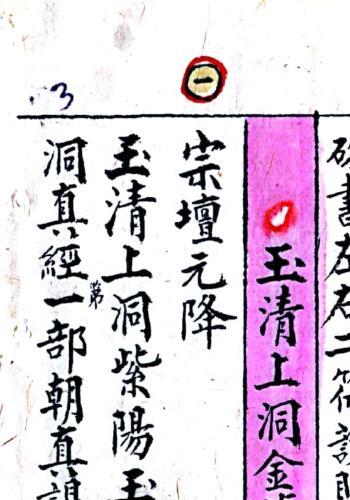 一
3
書左右二符
玉清上洞金
宗壇元降
玉清上洞紫陽玉
洞真經一部朝真
第